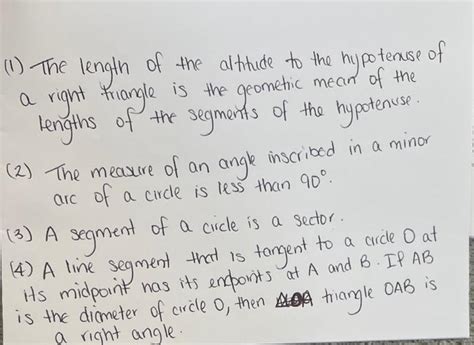 (1) The length of the altitude to the hypotenuse of
a right triangle is the geometric mean of the
lengths of the segments of the hypotenuse.
(2) The measure of an angle inscribed in a minor
arc of a circle is less than 90°.
(3) A segment of a circle is a sector.
(4) A line segment that is tangent to a circle O at
its midpoint has its endpoints at A and B. If AB
is the diameter of circle O, then triangle OAB is
a right angle.